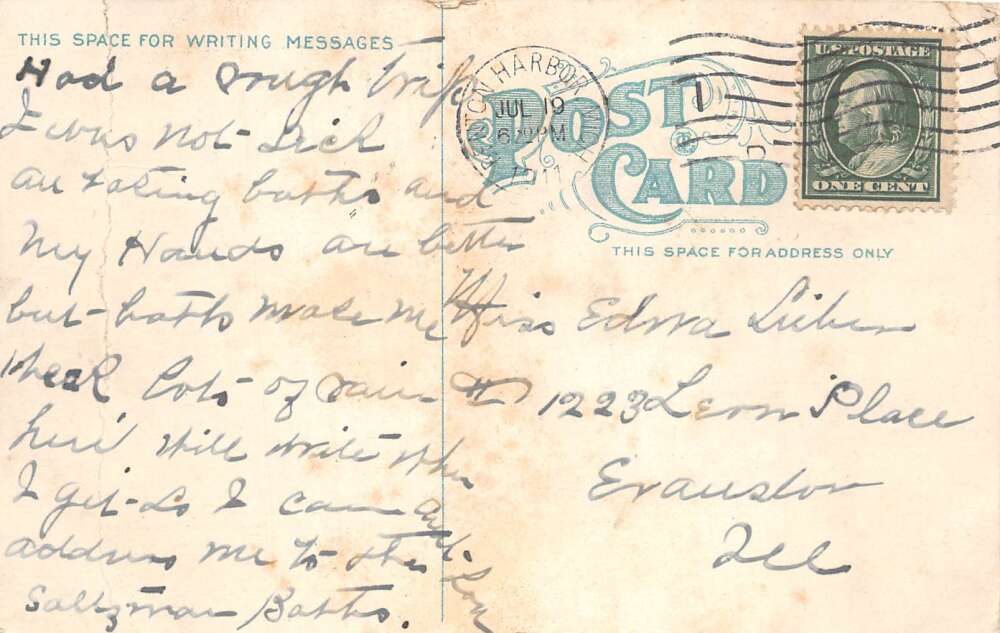 THIS SPACE FOR WRITING MESSAGES
Had a rough trip
I was not sick
am taking baths and
My Hands are better
but baths make me
weak lots of rain
here will write when
I get so I can
address me to the
Saltzman Baths.
BENTON HARBOR MICH
JUL 19
6 PM
1911
POST CARD
U.S. POSTAGE
ONE CENT
THIS SPACE FOR ADDRESS ONLY
Miss Edna
1223 Leon Place
Evanston
Ill